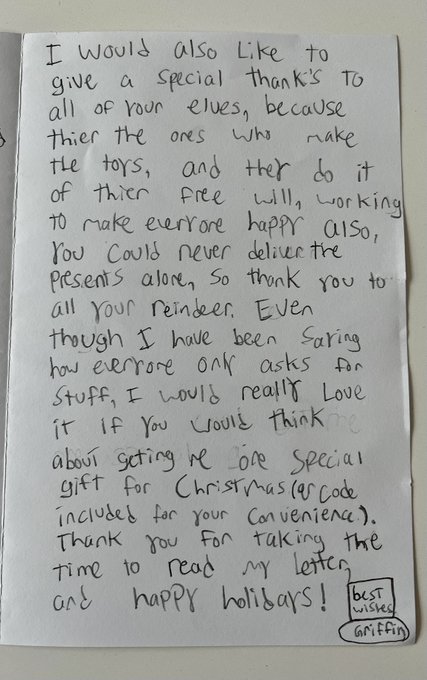 I would also like to
give a special thank's to
all of your elves, because
thier the ones who make
the toys, and they do it
of thier free will, working
to make everyone happy also,
you could never deliver the
presents alone, so thank you to
all your reindeer. Even
though I have been saying
how everyone only asks for
stuff, I would really love
it if you would think
about geting me one special
gift for Christmas (qr code
included for your convenience).
Thank you for taking the
time to read my letter,
and happy holidays!
best
wishes
Griffin